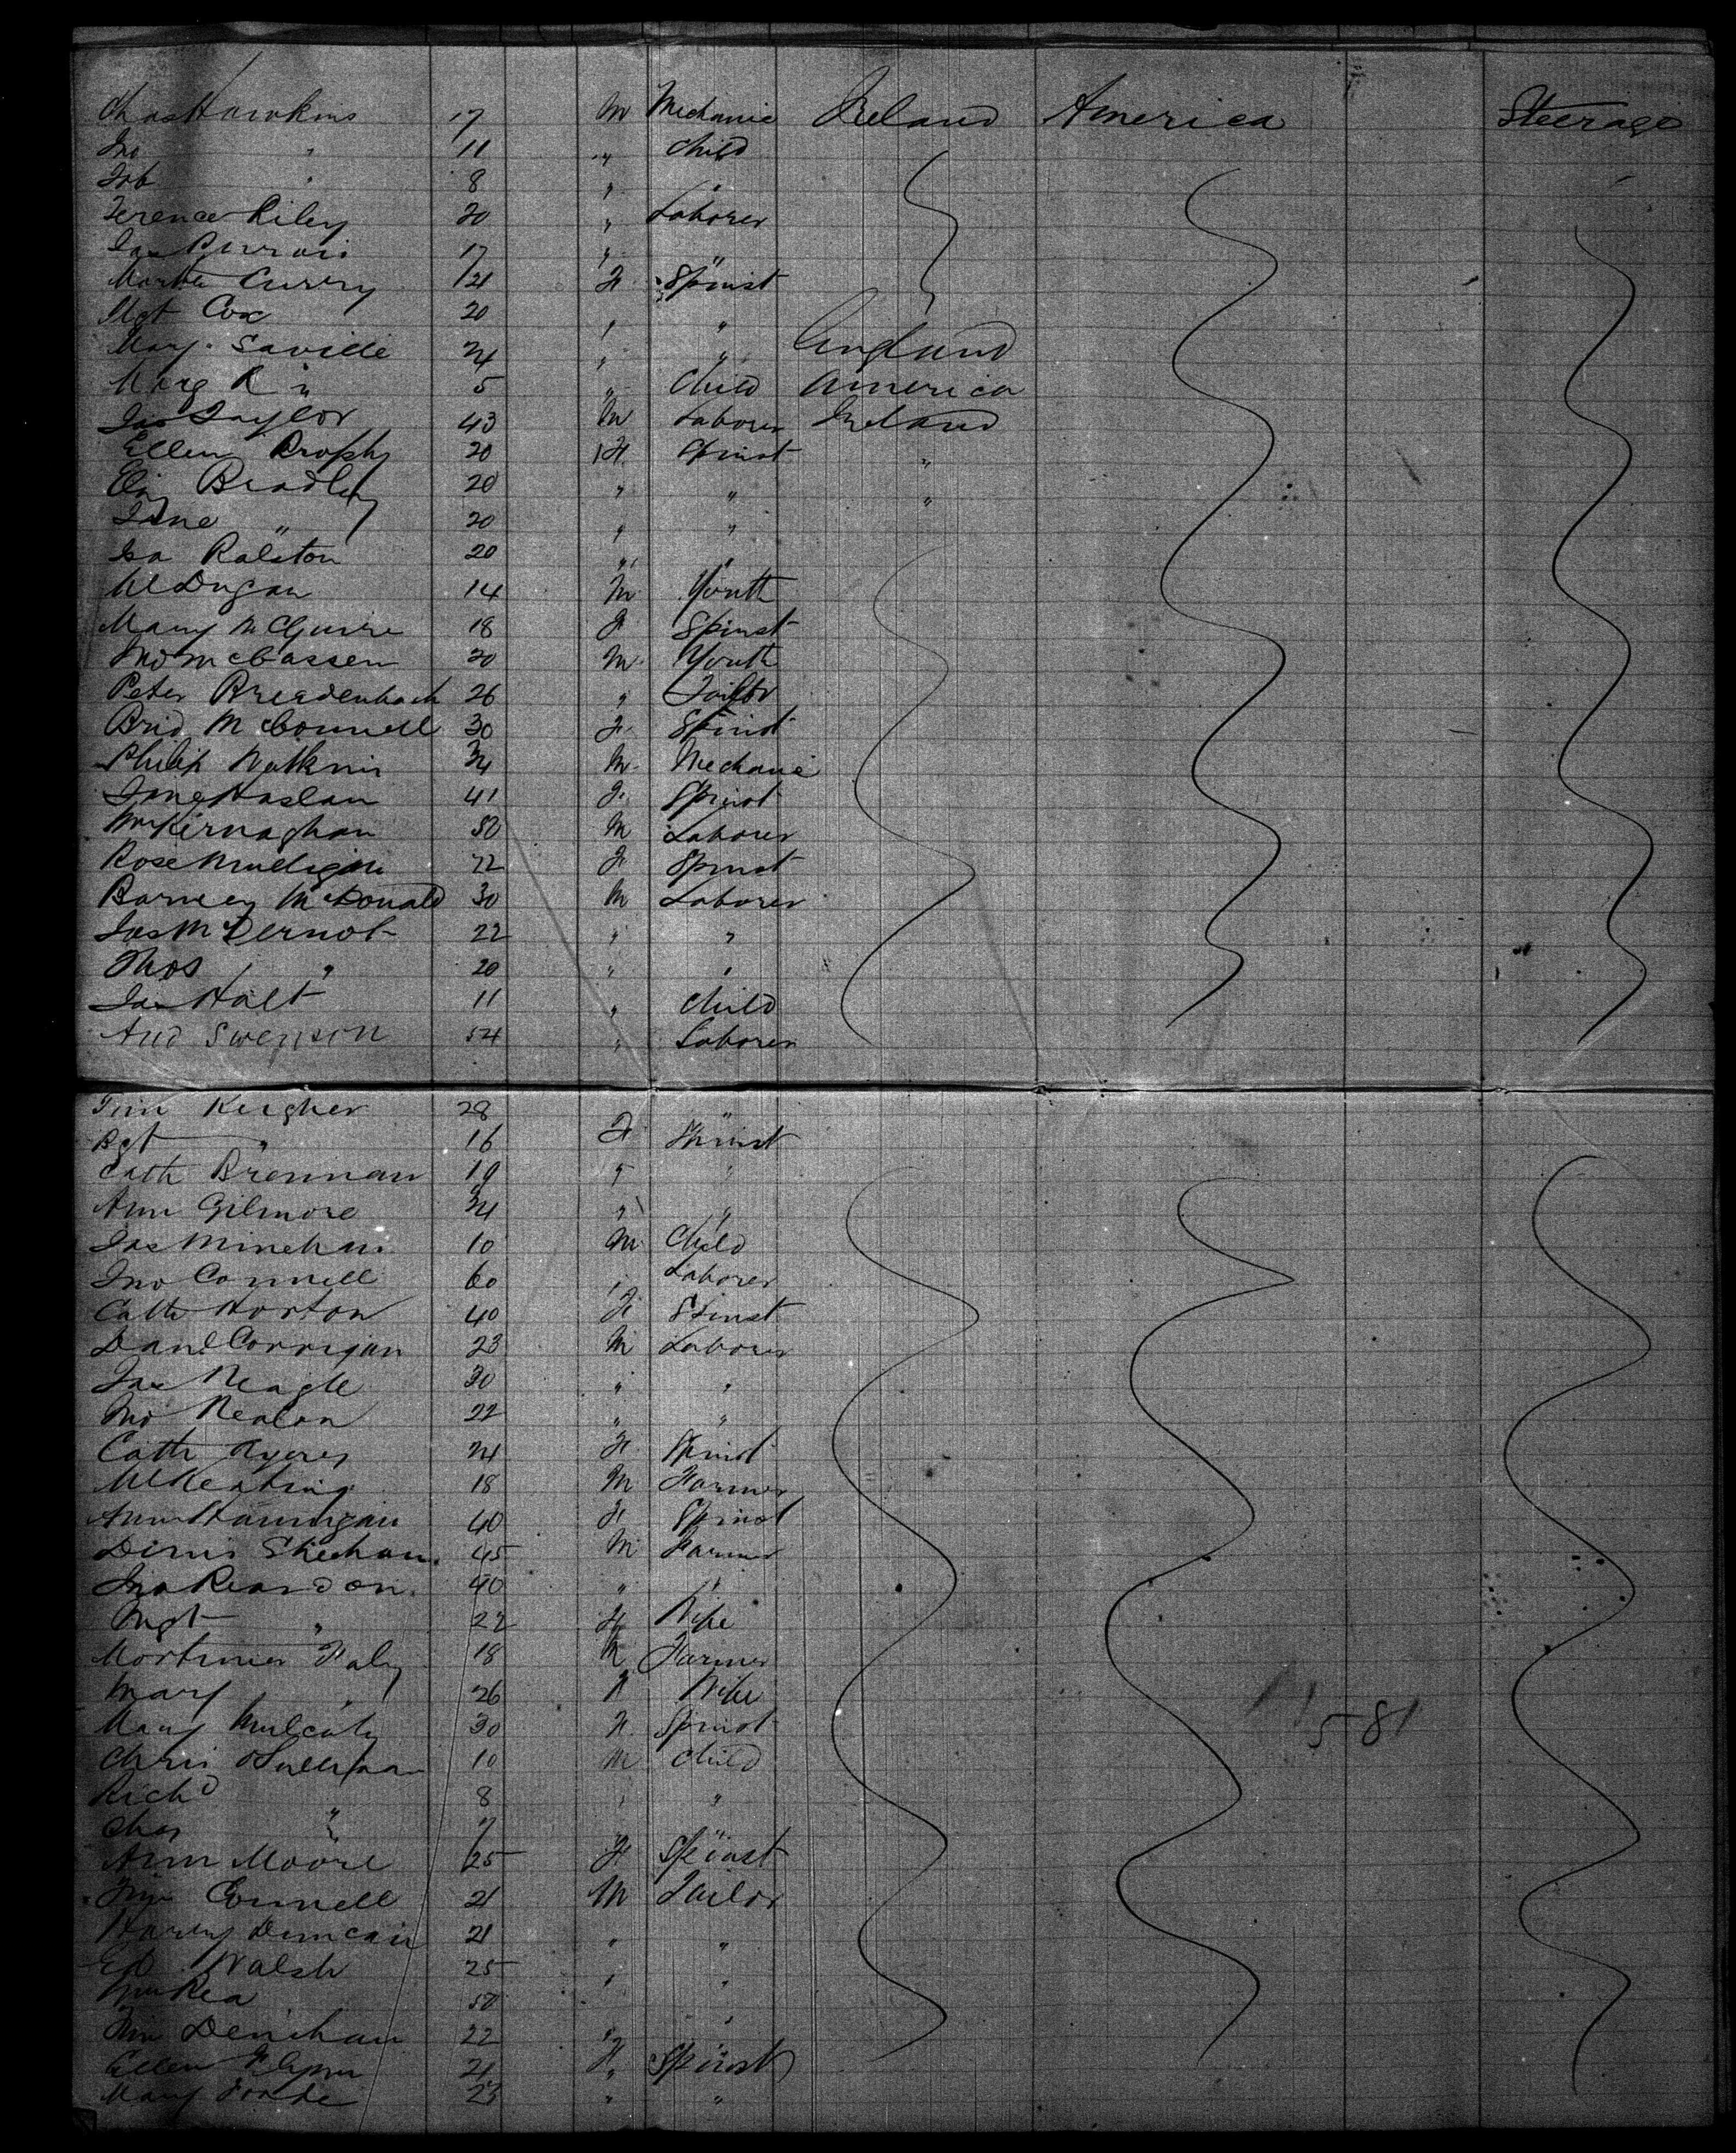 Chas Hawkins 17 M Mechanic Ireland America Steerage
Jno " 11 " Child
8 " "
Terence Riley 20 " Laborer
Jas 17 " "
Martha Curry 21 F Spinst
Mgt Cox 20 " "
Mary Saville 24 " " England
Marg R " 5 " Child America
Jas Taylor 43 M Laborer Ireland
Ellen Brophy 20 F Spinst "
Eliz Bradley 20 " " "
Jane " 20 " "
Isa Ralston 20 " "
Ml Dugan 14 M Youth
Mary McGuire 18 F Spinst
Jno 20 M Youth
Peter Breadenbach 26 " Tailor
Brid McConnell 30 F Spinst
Philip Watkins 34 M Mechanic
Jane Haslam 41 F Spinst
Wm Kernaghan 50 M Laborer
Rose Mulligan 22 F Spinst
Barney McDonald 30 M Laborer
Jas McDermot 22 " "
Thos " 20 " "
Jas Halt 11 " Child
And Swenson 54 " Laborer
Tim Kergher 28 "
Bgt " 16 F Spinst
Cath Brennan 19 " "
Ann Gilmore 34 " "
Jas Minehan 10 M Child
Jno Connell 60 " Laborer
Cath Horton 40 F Spinst
Danl Corrigan 23 M Laborer
Jas Neagle 30 " "
Jno Nealon 22 " "
Cath Ayers 24 F Spinst
Ml Keating 18 M Farmer
Ann Hannigan 40 F Spinst
Denis Sheehan 45 M Farmer
Jno Reardon 40 " "
Mgt " 22 F Wife
Mortimer Faly 18 M Farmer
Mary " 26 F Wife
Mary Mulcahy 30 F Spinst
Chris OSullivan 10 M Child
Richd 8 " "
Chas " 7 " "
Ann Moore 25 F Spinst
Connell 21 M Tailor
Harry Duncan 21 " "
Ed Walsh 25 " "
Wm Rea 50 "
Tim Denihan 22 "
Ellen Flynn 21 F Spinst
Mary Forde 23 " "
581